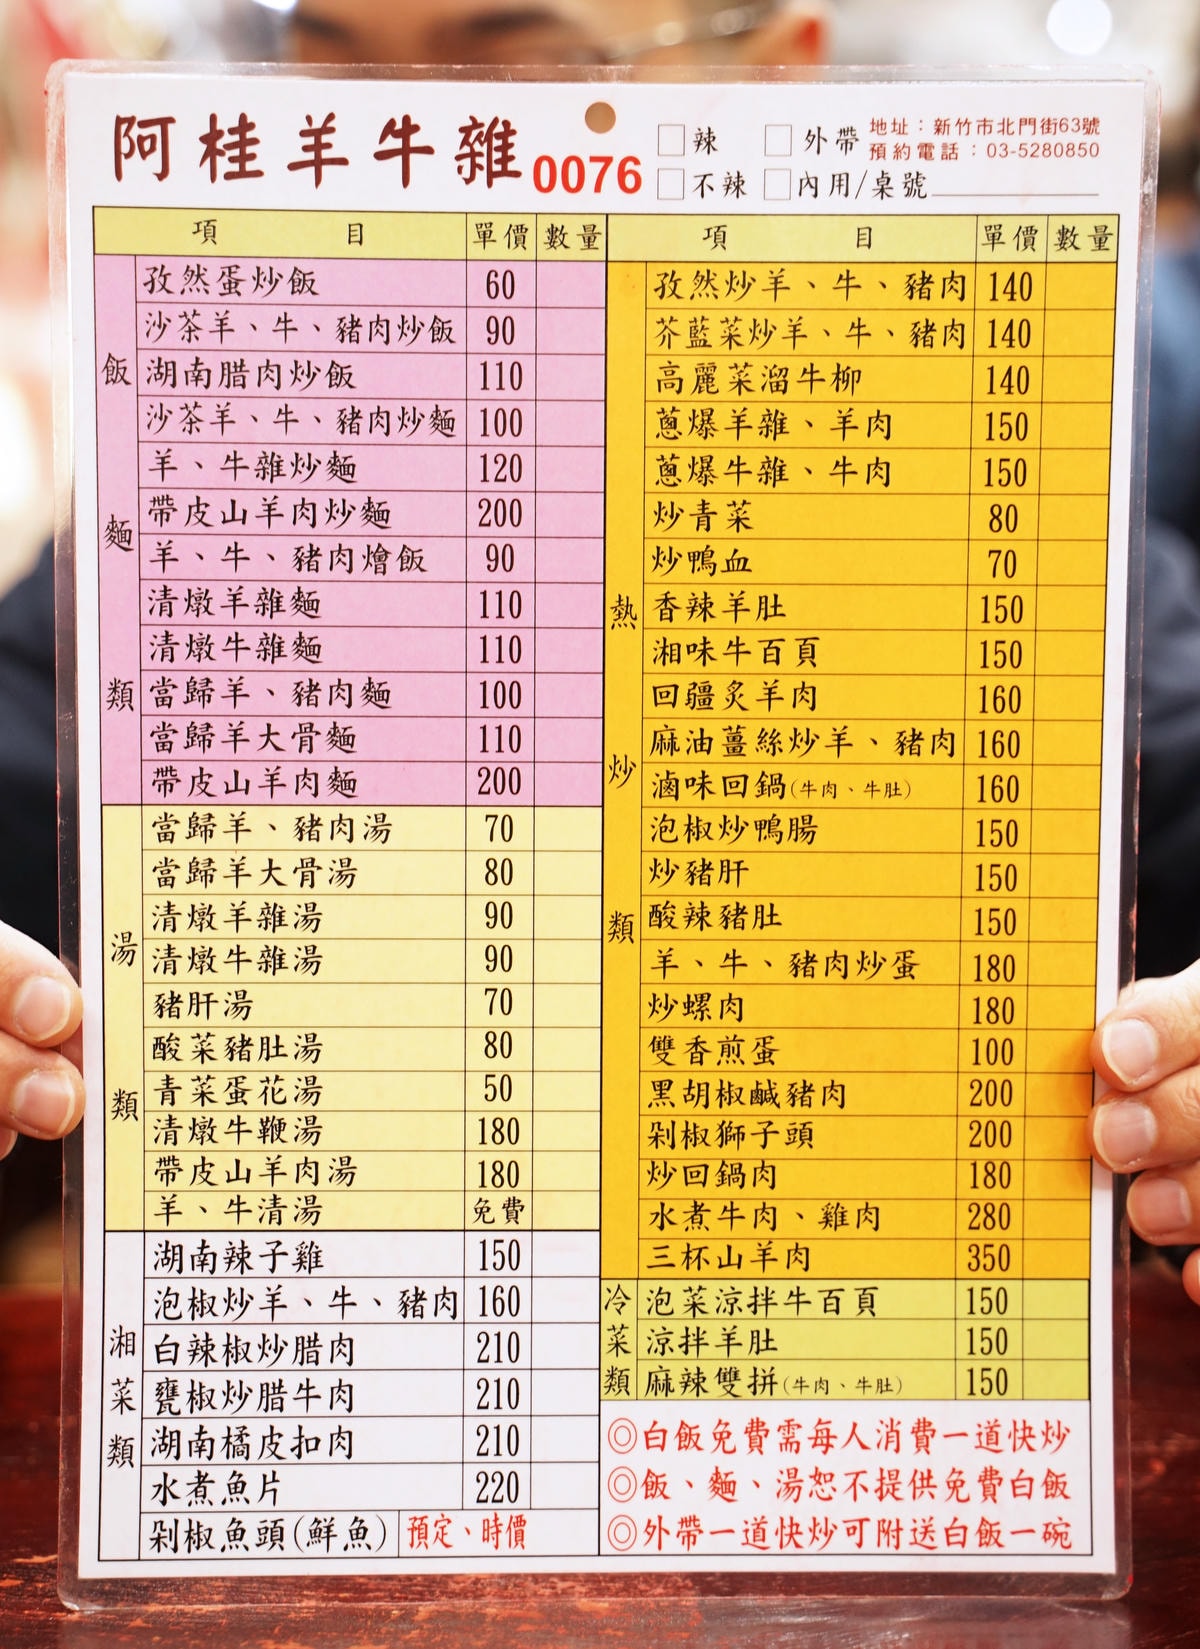 阿桂羊牛雜 0076
□辣 □外帶
□不辣 □內用/桌號
地址：新竹市北門街63號
預約電話：03-5280850
項目 單價 數量
飯麵類
孜然蛋炒飯 60
沙茶羊、牛、豬肉炒飯 90
湖南腊肉炒飯 110
沙茶羊、牛、豬肉炒麵 100
羊、牛雜炒麵 120
帶皮山羊肉炒麵 200
羊、牛、豬肉燴飯 90
清燉羊雜麵 110
清燉牛雜麵 110
當歸羊、豬肉麵 100
當歸羊大骨麵 110
帶皮山羊肉麵 200
湯類
當歸羊、豬肉湯 70
當歸羊大骨湯 80
清燉羊雜湯 90
清燉牛雜湯 90
豬肝湯 70
酸菜豬肚湯 80
青菜蛋花湯 50
清燉牛鞭湯 180
帶皮山羊肉湯 180
羊、牛清湯 免費
湘菜類
湖南辣子雞 150
泡椒炒羊、牛、豬肉 160
白辣椒炒腊肉 210
甕椒炒腊牛肉 210
湖南橘皮扣肉 210
水煮魚片 220
剁椒魚頭(鮮魚) 預定、時價
項目 單價 數量
熱炒類
孜然炒羊、牛、豬肉 140
芥藍菜炒羊、牛、豬肉 140
高麗菜溜牛柳 140
蔥爆羊雜、羊肉 150
蔥爆牛雜、牛肉 150
炒青菜 80
炒鴨血 70
香辣羊肚 150
湘味牛百頁 150
回疆炙羊肉 160
麻油薑絲炒羊、豬肉 160
滷味回鍋(牛肉、牛肚) 160
泡椒炒鴨腸 150
炒豬肝 150
酸辣豬肚 150
羊、牛、豬肉炒蛋 180
炒螺肉 180
雙香煎蛋 100
黑胡椒鹹豬肉 200
剁椒獅子頭 200
炒回鍋肉 180
水煮牛肉、雞肉 280
三杯山羊肉 350
冷菜類
泡菜涼拌牛百頁 150
涼拌羊肚 150
麻辣雙拼(牛肉、牛肚) 150
◎白飯免費需每人消費一道快炒
◎飯、麵、湯恕不提供免費白飯
◎外帶一道快炒可附送白飯一碗